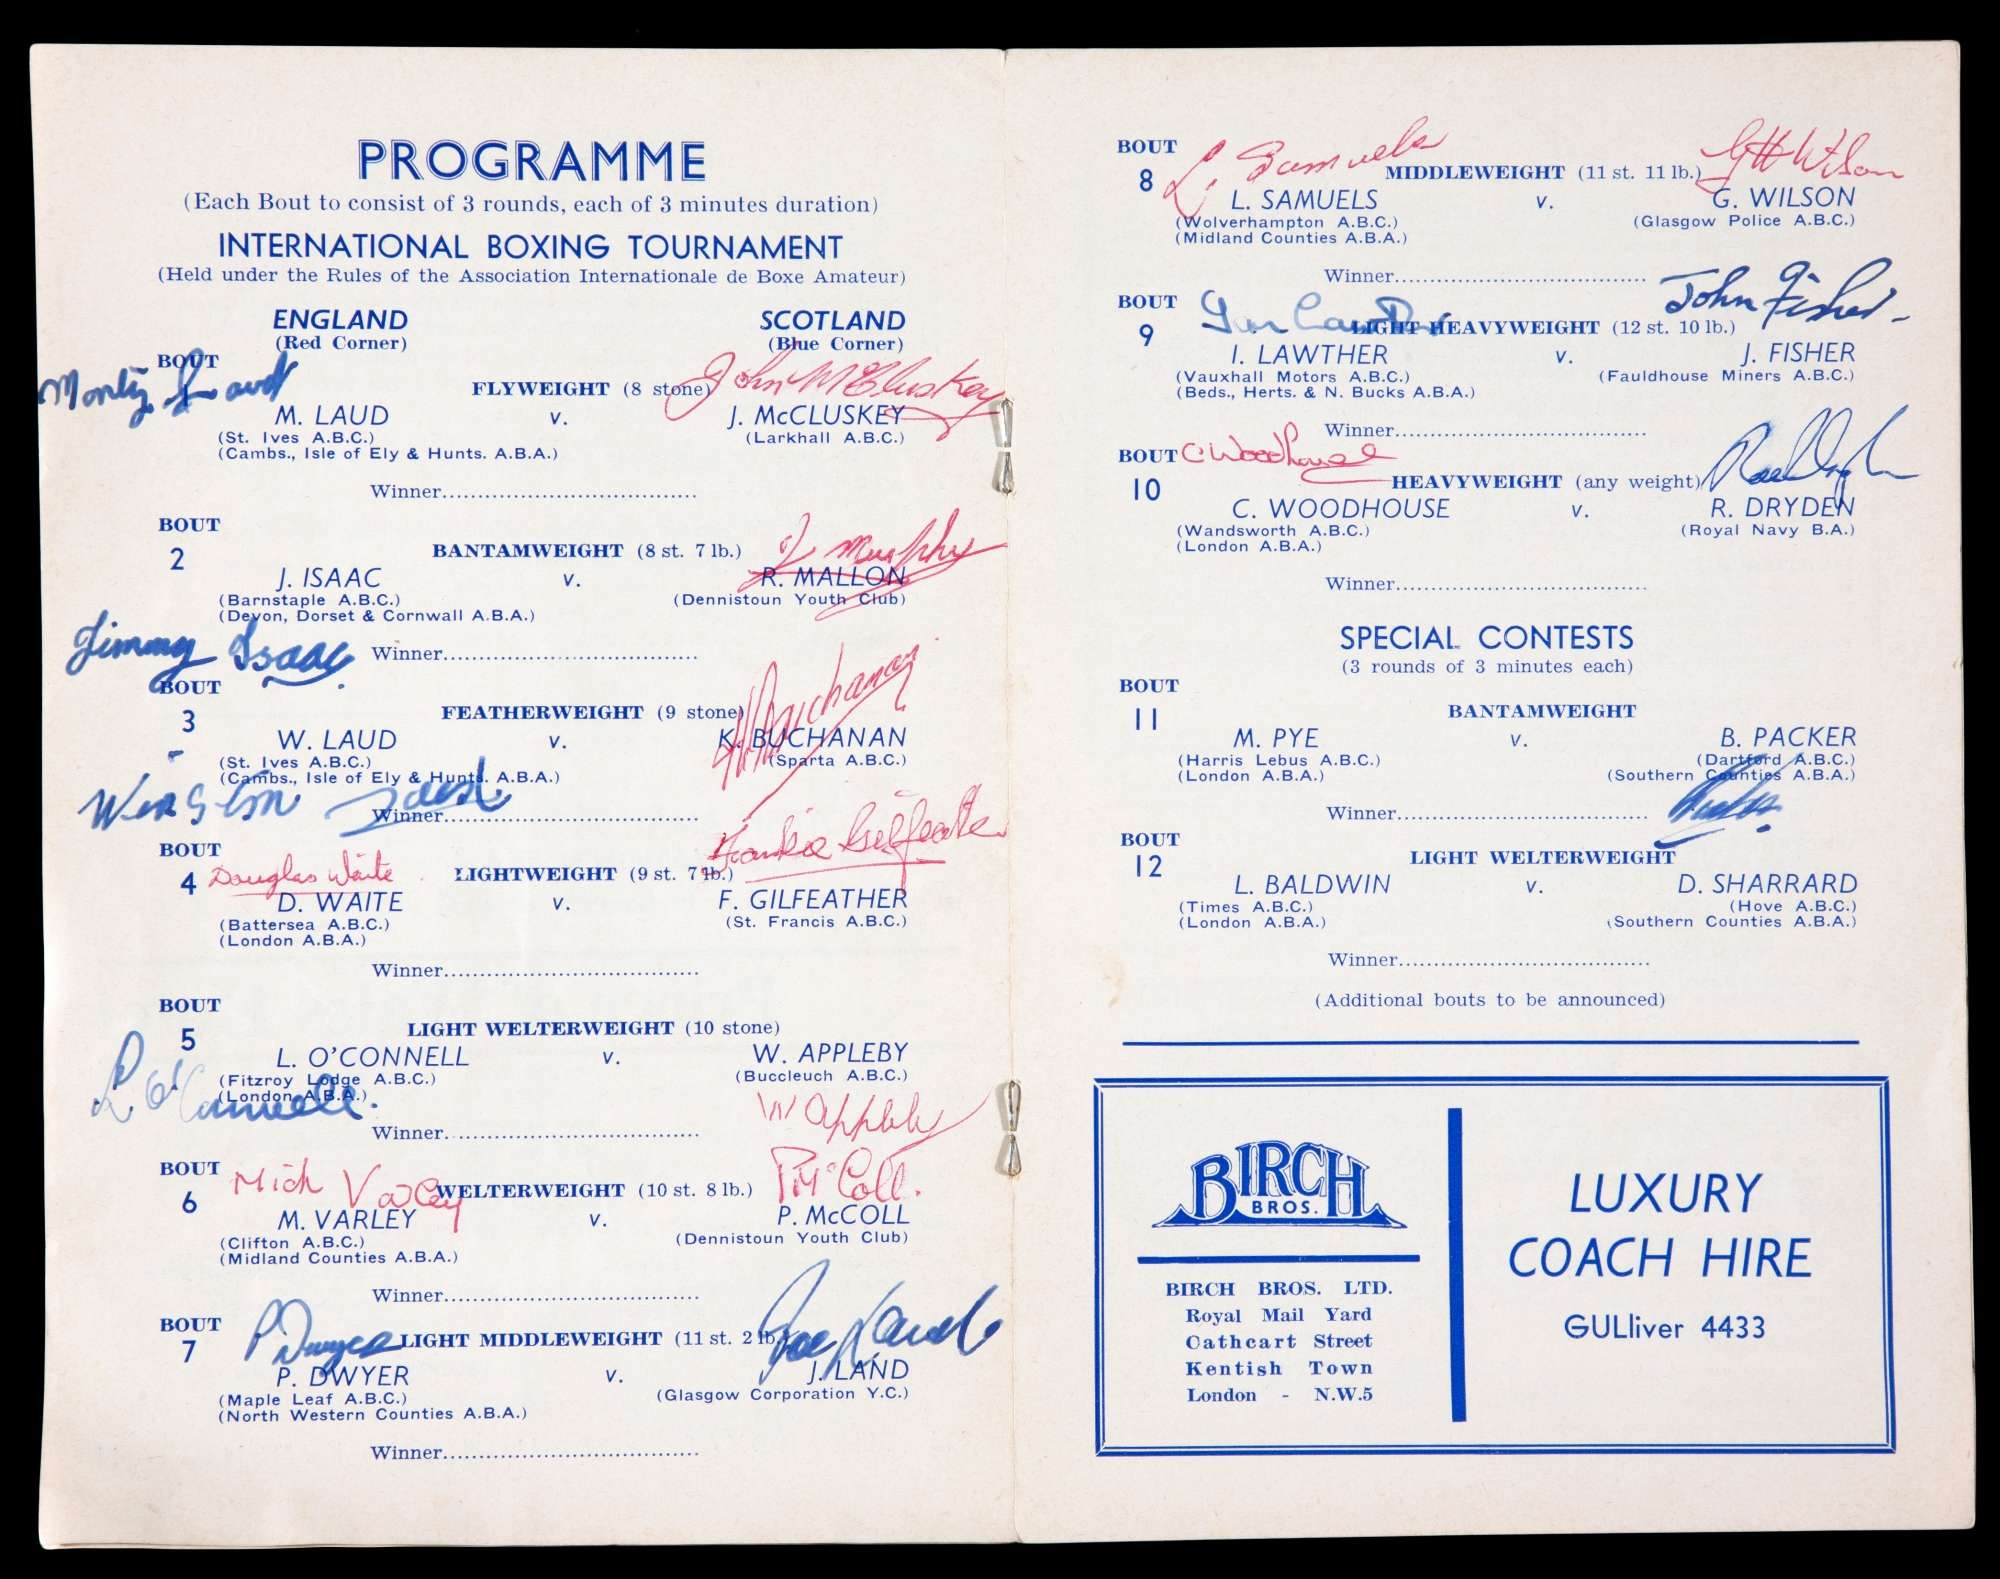 PROGRAMME
(Each Bout to consist of 3 rounds, each of 3 minutes duration)
INTERNATIONAL BOXING TOURNAMENT
(Held under the Rules of the Association Internationale de Boxe Amateur)
ENGLAND SCOTLAND
(Red Corner) (Blue Corner)
BOUT
Monty Laud John McCluskey
1 FLYWEIGHT (8 stone)
M. LAUD v. J. McCLUSKEY
(St. Ives A.B.C.) (Larkhall A.B.C.)
(Cambs., Isle of Ely & Hunts. A.B.A.)
Winner
BOUT
J Murphy
2 BANTAMWEIGHT (8 st. 7 lb.)
J. ISAAC v. R. MALLON
(Barnstaple A.B.C.) (Dennistoun Youth Club)
(Devon, Dorset & Cornwall A.B.A.)
Jimmy Isaac
Winner
BOUT
K Buchanan
3 FEATHERWEIGHT (9 stone)
W. LAUD v. K. BUCHANAN
(St. Ives A.B.C.) (Sparta A.B.C.)
(Cambs., Isle of Ely & Hunts. A.B.A.)
Winston Laud
Winner
BOUT
Douglas Waite Frankie Gilfeather
4 LIGHTWEIGHT (9 st. 7 lb.)
D. WAITE v. F. GILFEATHER
(Battersea A.B.C.) (St. Francis A.B.C.)
(London A.B.A.)
Winner
BOUT
5 LIGHT WELTERWEIGHT (10 stone)
L. O'CONNELL v. W. APPLEBY
(Fitzroy Lodge A.B.C.) (Buccleuch A.B.C.)
(London A.B.A.)
L. O'Connell. W Appleby
Winner
BOUT
Mick Varley P McColl.
6 WELTERWEIGHT (10 st. 8 lb.)
M. VARLEY v. P. McCOLL
(Clifton A.B.C.) (Dennistoun Youth Club)
(Midland Counties A.B.A.)
Winner
BOUT
P Dwyer Joe Land
7 LIGHT MIDDLEWEIGHT (11 st. 2 lb.)
P. DWYER v. J. LAND
(Maple Leaf A.B.C.) (Glasgow Corporation Y.C.)
(North Western Counties A.B.A.)
Winner
BOUT
L. Samuels G H Wilson
8 MIDDLEWEIGHT (11 st. 11 lb.)
L. SAMUELS v. G. WILSON
(Wolverhampton A.B.C.) (Glasgow Police A.B.C.)
(Midland Counties A.B.A.)
Winner
BOUT
Ian Lawther John Fisher
9 LIGHT HEAVYWEIGHT (12 st. 10 lb.)
I. LAWTHER v. J. FISHER
(Vauxhall Motors A.B.C.) (Fauldhouse Miners A.B.C.)
(Beds., Herts. & N. Bucks A.B.A.)
Winner
BOUT
C Woodhouse
10 HEAVYWEIGHT (any weight)
C. WOODHOUSE v. R. DRYDEN
(Wandsworth A.B.C.) (Royal Navy B.A.)
(London A.B.A.)
Winner
SPECIAL CONTESTS
(3 rounds of 3 minutes each)
BOUT
11 BANTAMWEIGHT
M. PYE v. B. PACKER
(Harris Lebus A.B.C.) (Dartford A.B.C.)
(London A.B.A.) (Southern Counties A.B.A.)
Winner
BOUT
12 LIGHT WELTERWEIGHT
L. BALDWIN v. D. SHARRARD
(Times A.B.C.) (Hove A.B.C.)
(London A.B.A.) (Southern Counties A.B.A.)
Winner
(Additional bouts to be announced)
BIRCH
BROS.
BIRCH BROS. LTD.
Royal Mail Yard
Cathcart Street
Kentish Town
London - N.W.5
LUXURY
COACH HIRE
GULliver 4433